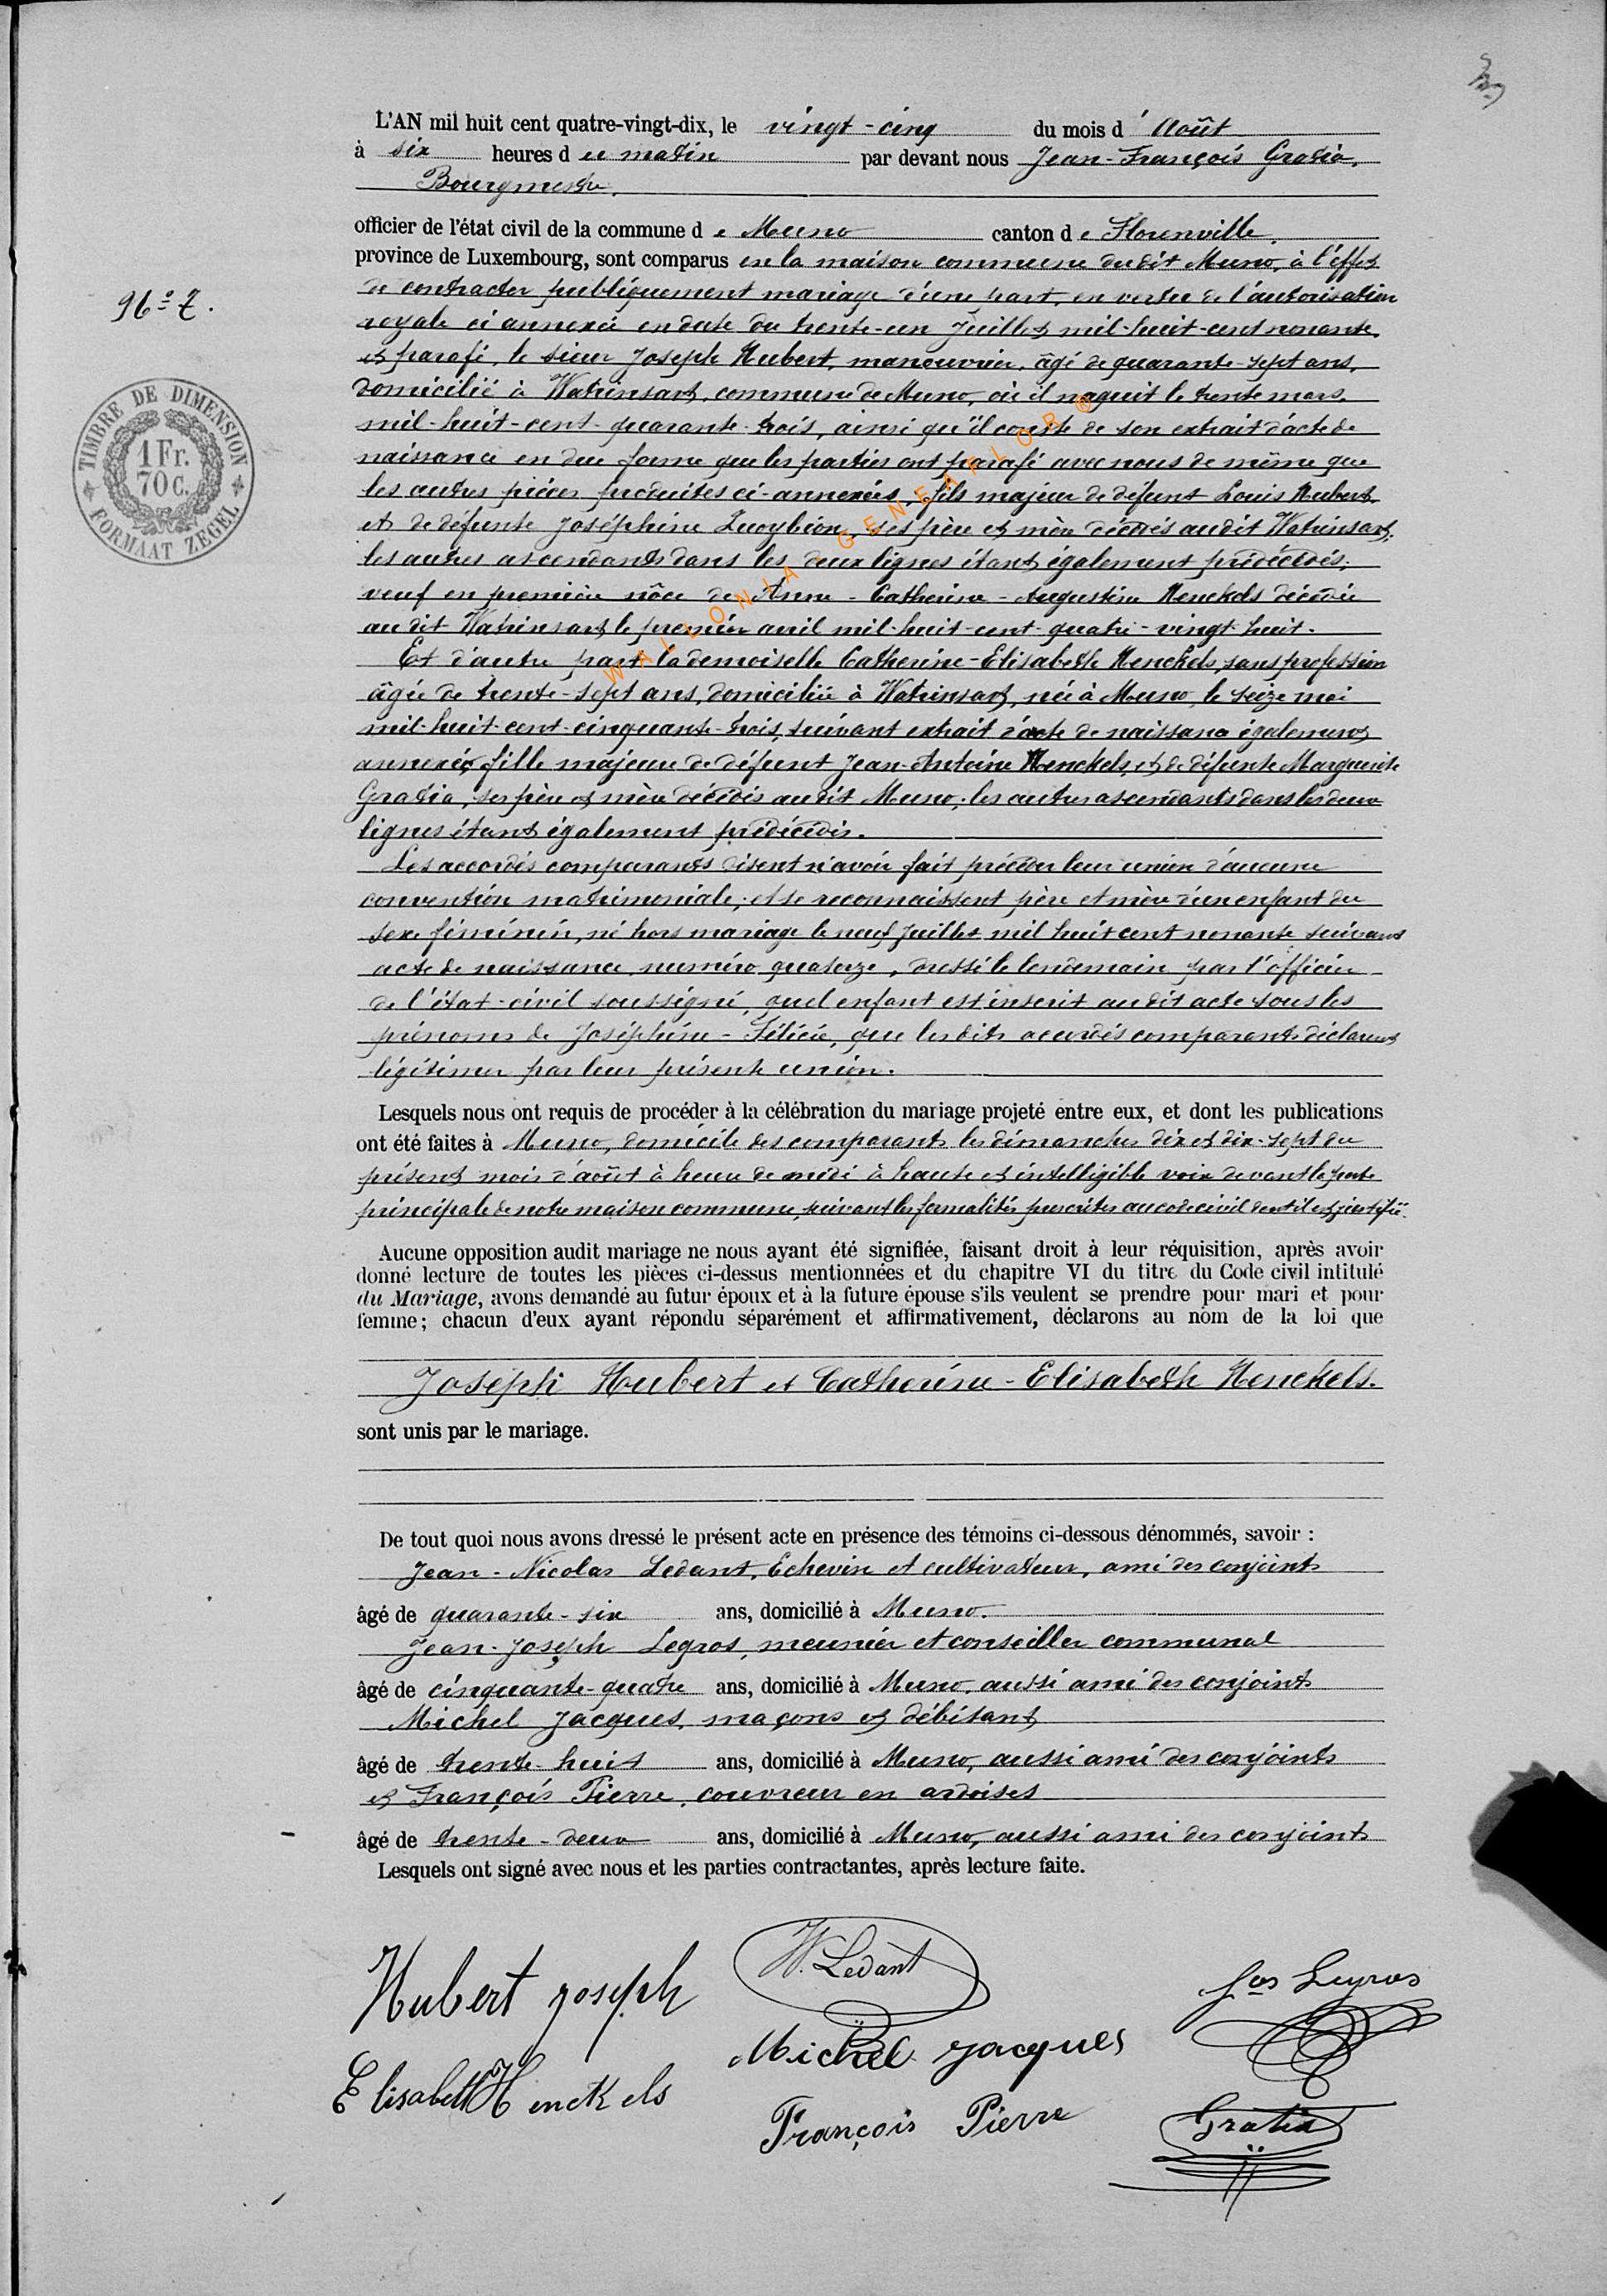 L'AN mil huit cent quatre-vingt-dix, le vingt-cinq du mois d'Août
à six heures du matin par devant nous Jean-François Gratia,
Bourgmestre,
officier de l'état civil de la commune de Muno canton de Florenville,
province de Luxembourg, sont comparus en la maison commune dudit Muno, à l'effet
96: 7.
de contracter publiquement mariage d'une part, en vertu de l'autorisation
royale ci annexée en date du trente-un Juillet mil-huit-cent nonante,
et parafé, le sieur Joseph Hubert, manouvrier, âgé de quarante-sept ans,
domicilié à Watrinsart, commune de Muno, où il naquit le trente mars,
mil-huit-cent-quarante-trois, ainsi qu'il conste de son extrait d'acte de
naissance en due forme que les parties ont parafé avec nous de même que
les autres pièces produites ci-annexées, fils majeur de défunt Louis Hubert,
et de défunte Joséphine ses père et mère décédés audit Watrinsart,
les autres ascendants dans les deux lignes étant également prédécédés;
veuf en première nôce de Anne-Catherine-Augustine Henckels décédée
audit Watrinsart le premier avril mil-huit-cent-quatre-vingt-huit.
Et d'autre part la demoiselle Catherine-Elisabeth Henckels, sans profession
âgée de trente-sept ans, domiciliée à Watrinsart, née à Muno, le seize mai
mil-huit-cent-cinquante-trois, suivant extrait d'acte de naissance également
annexé, fille majeure de défunt Jean-Antoine Henckels, et de défunte Marguerite
Gratia, ses père et mère décédés audit Muno; les autres ascendants dans les deux
lignes étant également prédécédés.
Les accordés comparants disent n'avoir fait précéder leur union d'aucune
convention matrimoniale; et se reconnaissent père et mère d'un enfant du
sexe féminin, né hors mariage le neuf Juillet mil huit cent nonante suivant
acte de naissance, numéro quatorze, dressé le lendemain par l'officier
de l'état-civil soussigné, quel enfant est inscrit audit acte sous les
prénoms de Joséphine-Félicie, que lesdits accordés comparants déclarent
légitimer par leur présente union.
TIMBRE DE DIMENSION
1 Fr.
70 c.
FORMAAT ZEGEL
WALLONIA GENEAFLOR ®
Lesquels nous ont requis de procéder à la célébration du mariage projeté entre eux, et dont les publications
ont été faites à Muno, domicile des comparants les dimanches dix et dix-sept du
présent mois d'août à heure de midi à haute et intelligible voix devant la porte
principale de notre maison commune, suivant les formalités prescrites au code civil dont il est justifié.
Aucune opposition audit mariage ne nous ayant été signifiée, faisant droit à leur réquisition, après avoir
donné lecture de toutes les pièces ci-dessus mentionnées et du chapitre VI du titre du Code civil intitulé
du Mariage, avons demandé au futur époux et à la future épouse s'ils veulent se prendre pour mari et pour
femme; chacun d'eux ayant répondu séparément et affirmativement, déclarons au nom de la loi que
Joseph Hubert et Catherine-Elisabeth Henckels.
sont unis par le mariage.
De tout quoi nous avons dressé le présent acte en présence des témoins ci-dessous dénommés, savoir :
Jean-Nicolas Ledant, Echevin et cultivateur, ami des conjoints
âgé de quarante-six ans, domicilié à Muno.
Jean-Joseph Legros, meunier et conseiller communal
âgé de cinquante-quatre ans, domicilié à Muno, aussi ami des conjoints
Michel Jacques, maçons et débitant
âgé de trente-huit ans, domicilié à Muno, aussi ami des conjoints
et François Pierre, couvreur en ardoises
âgé de trente-deux ans, domicilié à Muno, aussi ami des conjoints
Lesquels ont signé avec nous et les parties contractantes, après lecture faite.
Hubert joseph
Ledant
Jos Legros
Michel Jacques
Elisabeth Henckels
François Pierre
Gratia